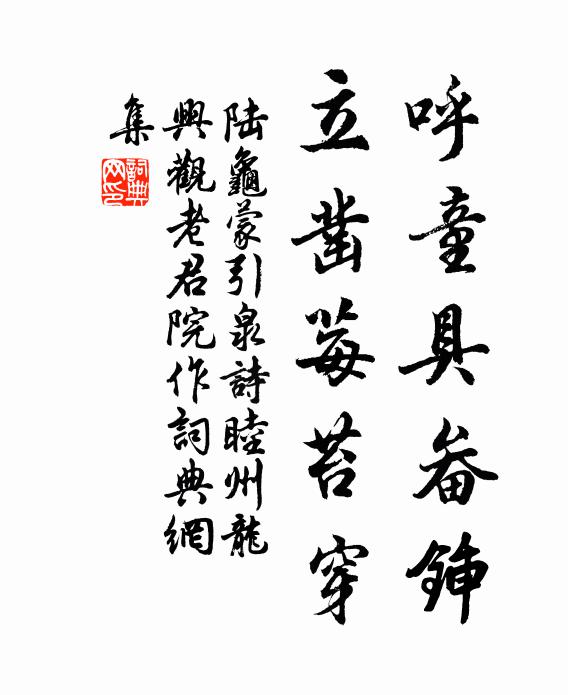 呼童具畚鍤
立鑿莓苔穿
陸龜蒙引泉詩睦州龍
興觀老君院作詞典網
集
詞典網印